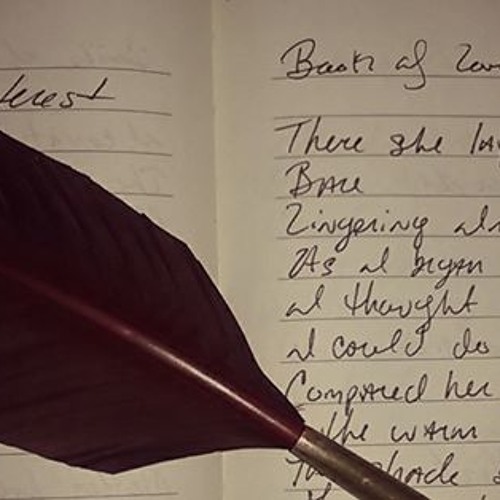 terest
Book of Lov
There she la
Bare
Lingering al
As I began
I thought
I could do
Compared her
the warm
The shade s